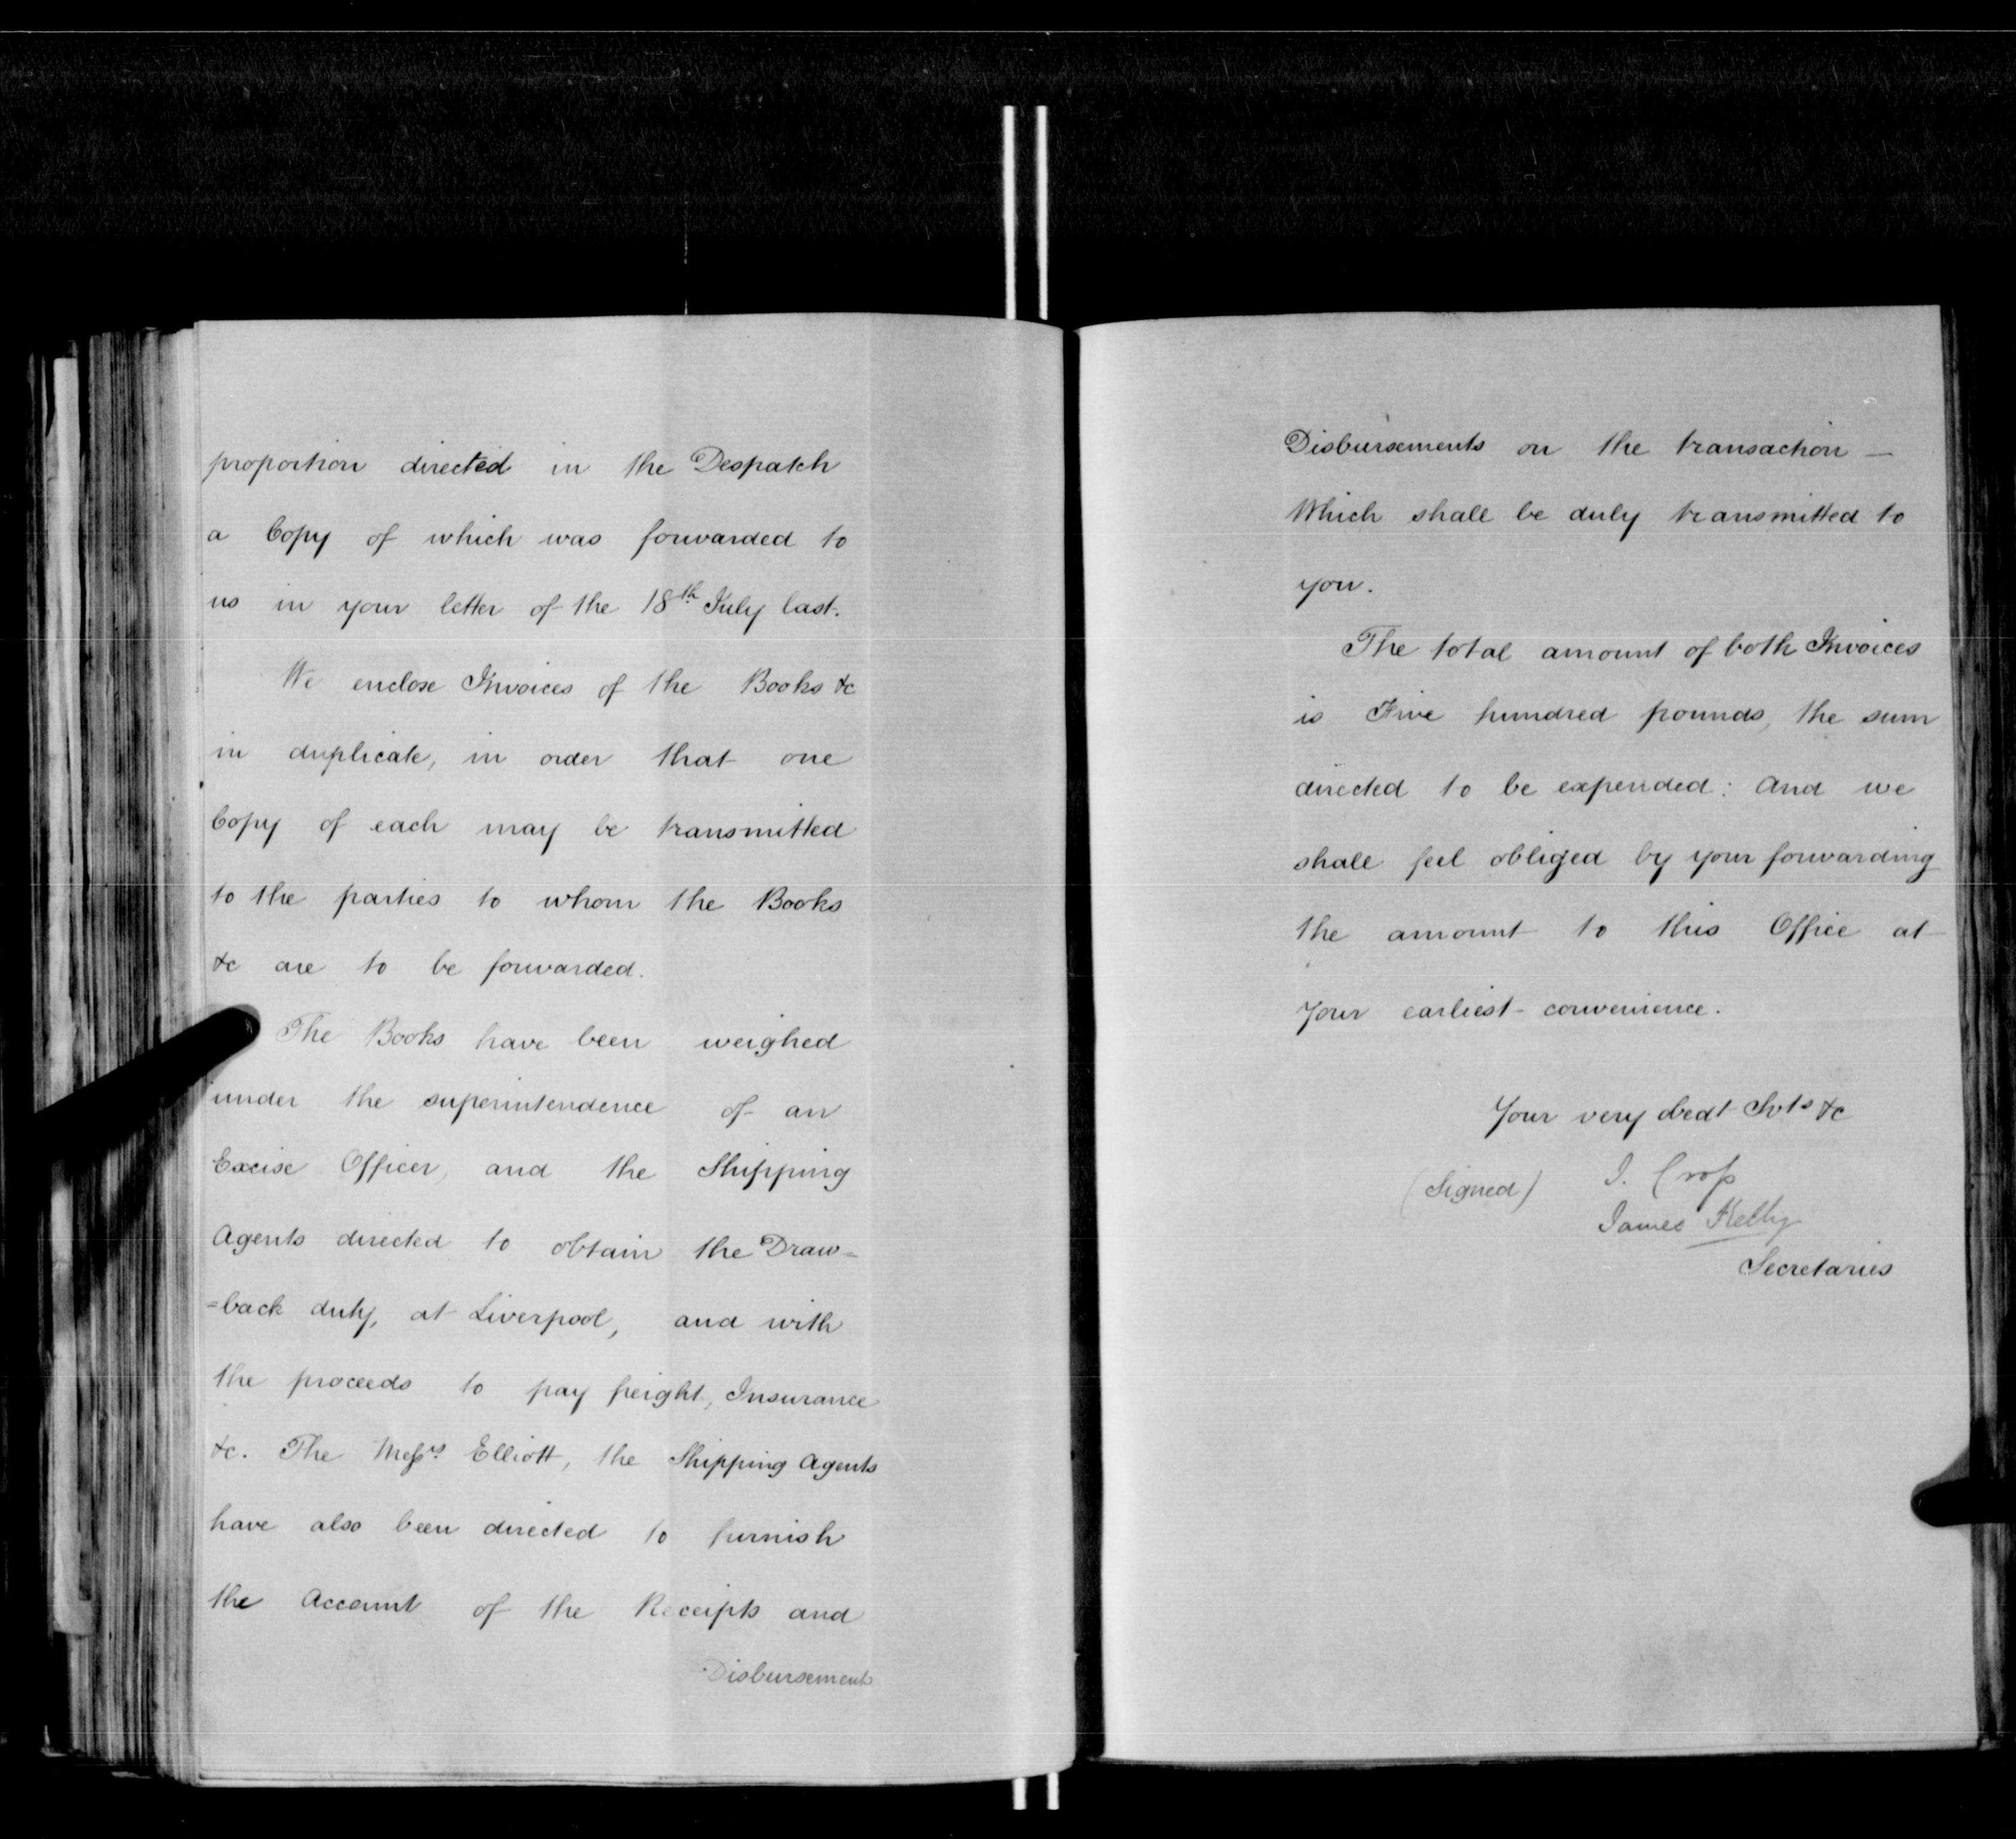 proportion directed in the Despatch
a Copy of which was forwarded to
us in your letter of the 18th July last.
We enclose Invoices of the Books &c
in duplicate, in order that one
Copy of each may be transmitted
to the parties to whom the Books
&c are to be forwarded.
The Books have been weighed
under the superintendence of an
Excise Officer, and the Shipping
Agents directed to obtain the Draw=
=back duty, at Liverpool, and with
the proceeds to pay freight, Insurance
&c. The Messrs Elliott, the Shipping Agents
have also been directed to furnish
the Account of the Receipts and
Disbursements
Disbursements on the transaction —
Which shall be duly transmitted to
you.
The total amount of both Invoices
is Five hundred pounds, the sum
directed to be expended: And we
shall feel obliged by your forwarding
the amount to this Office at
Your earliest convenience.
Your very obedt Svts &c
(Signed) J. Cross
James Kelly
Secretaries